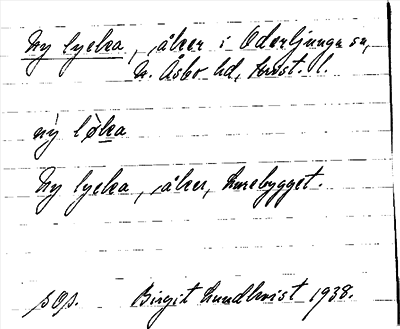 Ny lycka, åker i Oderljunga sn,
N. Åsbo hd, Krist. l.
ny̌ lø̀ka
Ny lycka, åker, Lurebygget.
sgs. Birgit Lundkvist 1938.